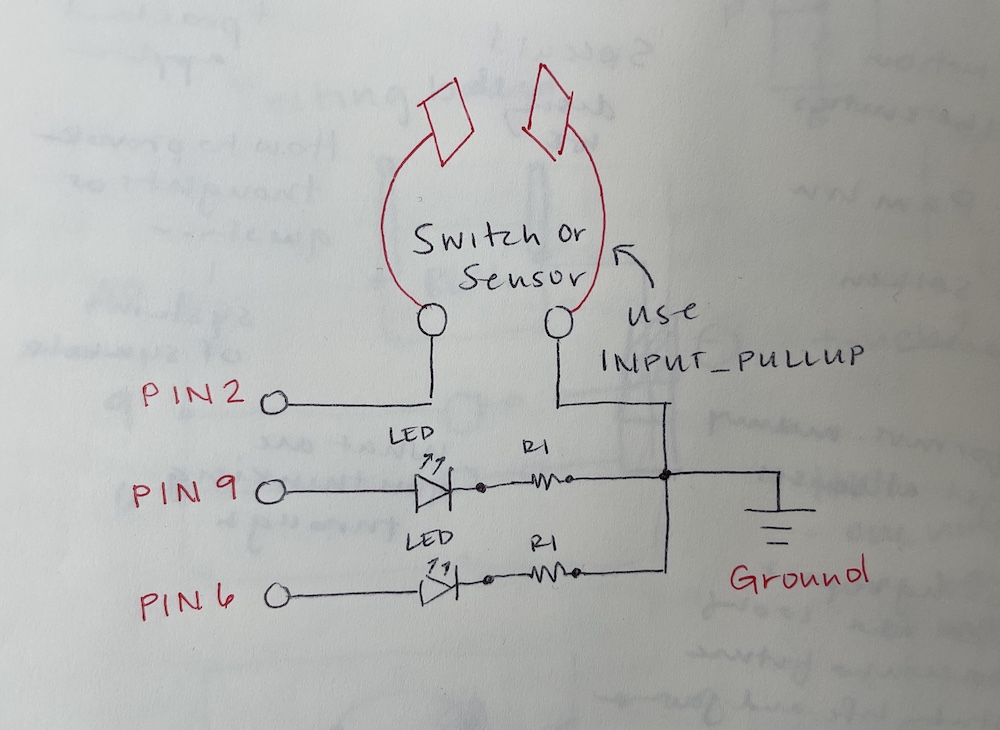 Switch or
Sensor
use
INPUT_PULLUP
PIN 2
LED
R1
PIN 9
LED
R1
PIN 6
Ground